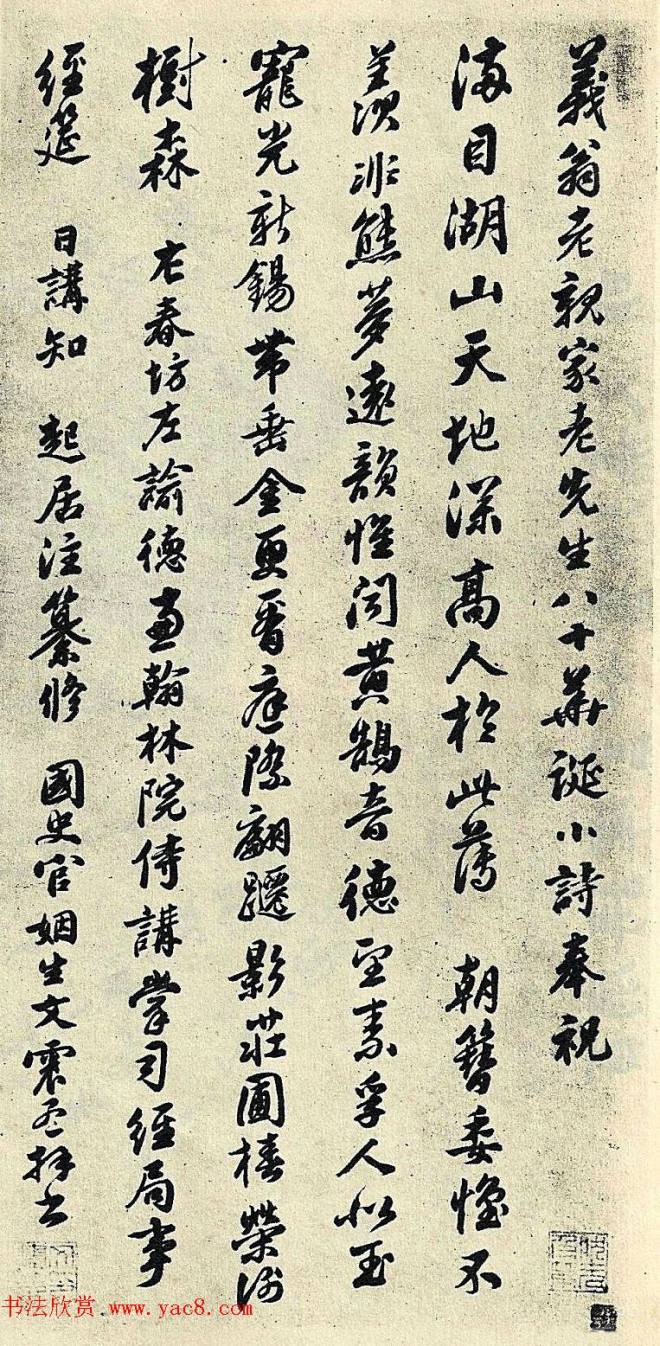 義翁老親家老先生八十華誕小詩奉祝
滿目湖山天地深高人於此薄 朝簪委懷不
羨飛熊夢遠韻惟聞黃鵠音德望素孚人似玉
寵光新錫帶垂金更看庭際翩躚影莊圃椿榮謝
樹森 右春坊左諭德兼翰林院侍講掌司經局事
經筵 日講知 起居注纂修 國史官姻生文震孟拜書
书法欣赏 www.yac8.com